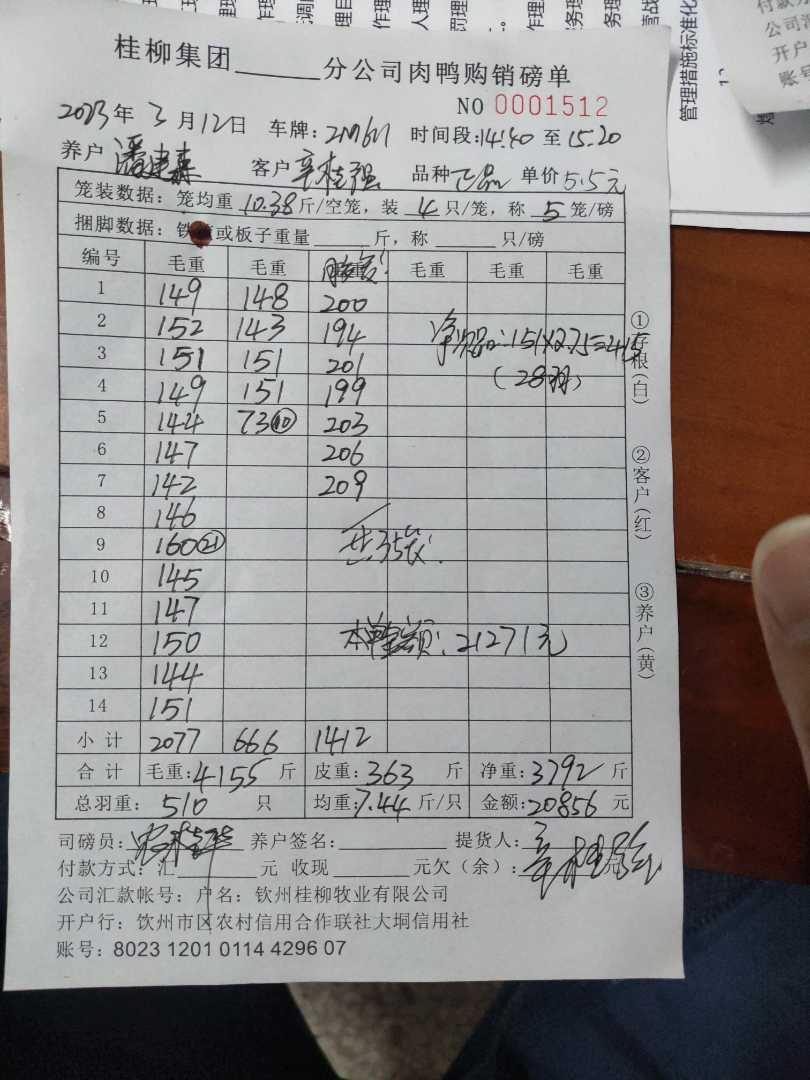 桂柳集团______分公司肉鸭购销磅单
NO 0001512
2023年3月12日 车牌: 时间段:14:40 至 15:20
养户 客户 辛桂强 品种 正品 单价 5.5元
笼装数据: 笼均重 10.38 斤/空笼, 装 4 只/笼, 称 5 笼/磅
捆脚数据: 铁 或板子重量______斤, 称______只/磅
编号 毛重 毛重 毛重 毛重 毛重
1 149 148 200
2 152 143 194 净次品:151×2.75=415
3 151 151 201 (28羽)
4 149 151 199
5 144 73⑩ 203
6 147 206
7 142 209
8 146
9 160㉑ 共35笼
10 145
11 147
12 150 本单金额:21271元
13 144
14 151
小计 2077 666 1412
合计 毛重:4155 斤 皮重:363 斤 净重:3792 斤
总羽重: 510 只 均重:7.44 斤/只 金额:20856 元
司磅员: 养户签名:______ 提货人:
付款方式: 汇______元 收现______元欠(余):
公司汇款帐号: 户名: 钦州桂柳牧业有限公司
开户行: 饮州市区农村信用合作联社大垌信用社
账号: 8023 1201 0114 4296 07
①存根(白)
②客户(红)
③养户(黄)
管理措施标准化
付款方
公司汇
开户
账号